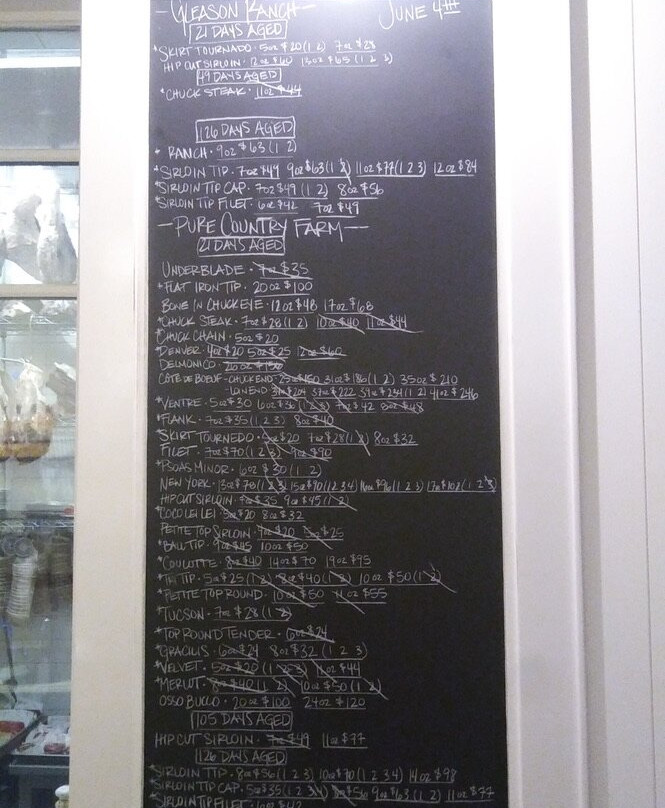 - GLEASON RANCH - JUNE 4TH
21 DAYS AGED
*SKIRT TOURNADO · 5oz $20 (1 2) 7oz $28
HIP CUT SIRLOIN · 12oz $60 13oz $65 (1 2 3)
49 DAYS AGED
*CHUCK STEAK · 11oz $44
126 DAYS AGED
* RANCH · 9oz $63 (1 2)
*SIRLOIN TIP · 7oz $49 9oz $63 (1 2) 11oz $77 (1 2 3) 12oz $84
*SIRLOIN TIP CAP · 7oz $49 (1 2) 8oz $56
*SIRLOIN TIP FILET · 6oz $42 7oz $49
- PURE COUNTRY FARM -
21 DAYS AGED
UNDERBLADE · 7oz $35
*FLAT IRON TIP · 20oz $100
BONE IN CHUCK EYE · 12oz $48 17oz $68
*CHUCK STEAK · 7oz $28 (1 2) 10oz $40 11oz $44
*CHUCK CHAIN · 5oz $20
*DENVER · 4oz $20 5oz $25 12oz $60
DELMONICO · 26oz
CÔTE DE BOEUF - CHUCK END · 25oz $150 31oz $186 (1 2) 35oz $210
- LOIN END · 34oz $204 37oz $222 39oz $234 (1 2) 41oz $246
*VENTRE · 5oz $30 6oz $36 (1 2 3) 7oz $42 8oz $48
*FLANK · 7oz $35 (1 2 3) 8oz $40
*SKIRT TOURNEDO · 5oz $20 7oz $28 (1 2) 8oz $32
FILET · 7oz $70 (1 2 3) 9oz $90
*PSOAS MINOR · 6oz $30 (1 2)
NEW YORK · 13oz $78 (1 2 3) 15oz $90 (1 2 3 4) 16oz $96 (1 2 3) 17oz $102 (1 2 3)
HIP CUT SIRLOIN · 7oz $35 9oz $45 (1 2)
*COCO LEI LEI · 5oz $20 8oz $32
PETITE TOP SIRLOIN · $20 5oz $25
*BALL TIP · 9oz $45 10oz $50
*COULOTTE · 8oz $40 14oz $70 19oz $95
*TRI TIP · 5oz $25 (1 2) 8oz $40 (1 2) 10oz $50 (1 2)
*PETITE TOP ROUND · 10oz $50 11oz $55
*TUCSON · 7oz $28 (1 2)
*TOP ROUND TENDER · 6oz $24
*GRACILIS · 6oz $24 8oz $32 (1 2 3)
*VELVET · 5oz $20 (1 2 3) 11oz $44
*MERLOT · 8oz $40 (1 2) 10oz $50 (1 2)
OSSO BUCCO · 20oz $100 24oz $120
105 DAYS AGED
HIP CUT SIRLOIN · 7oz $49 11oz $77
126 DAYS AGED
*SIRLOIN TIP · 8oz $56 (1 2 3) 10oz $70 (1 2 3 4) 14oz $98
*SIRLOIN TIP CAP · 5oz $35 (1 2 3 4) 8oz $56 9oz $63 (1 2) 11oz $77
*SIRLOIN TIP FILET · 6oz $42